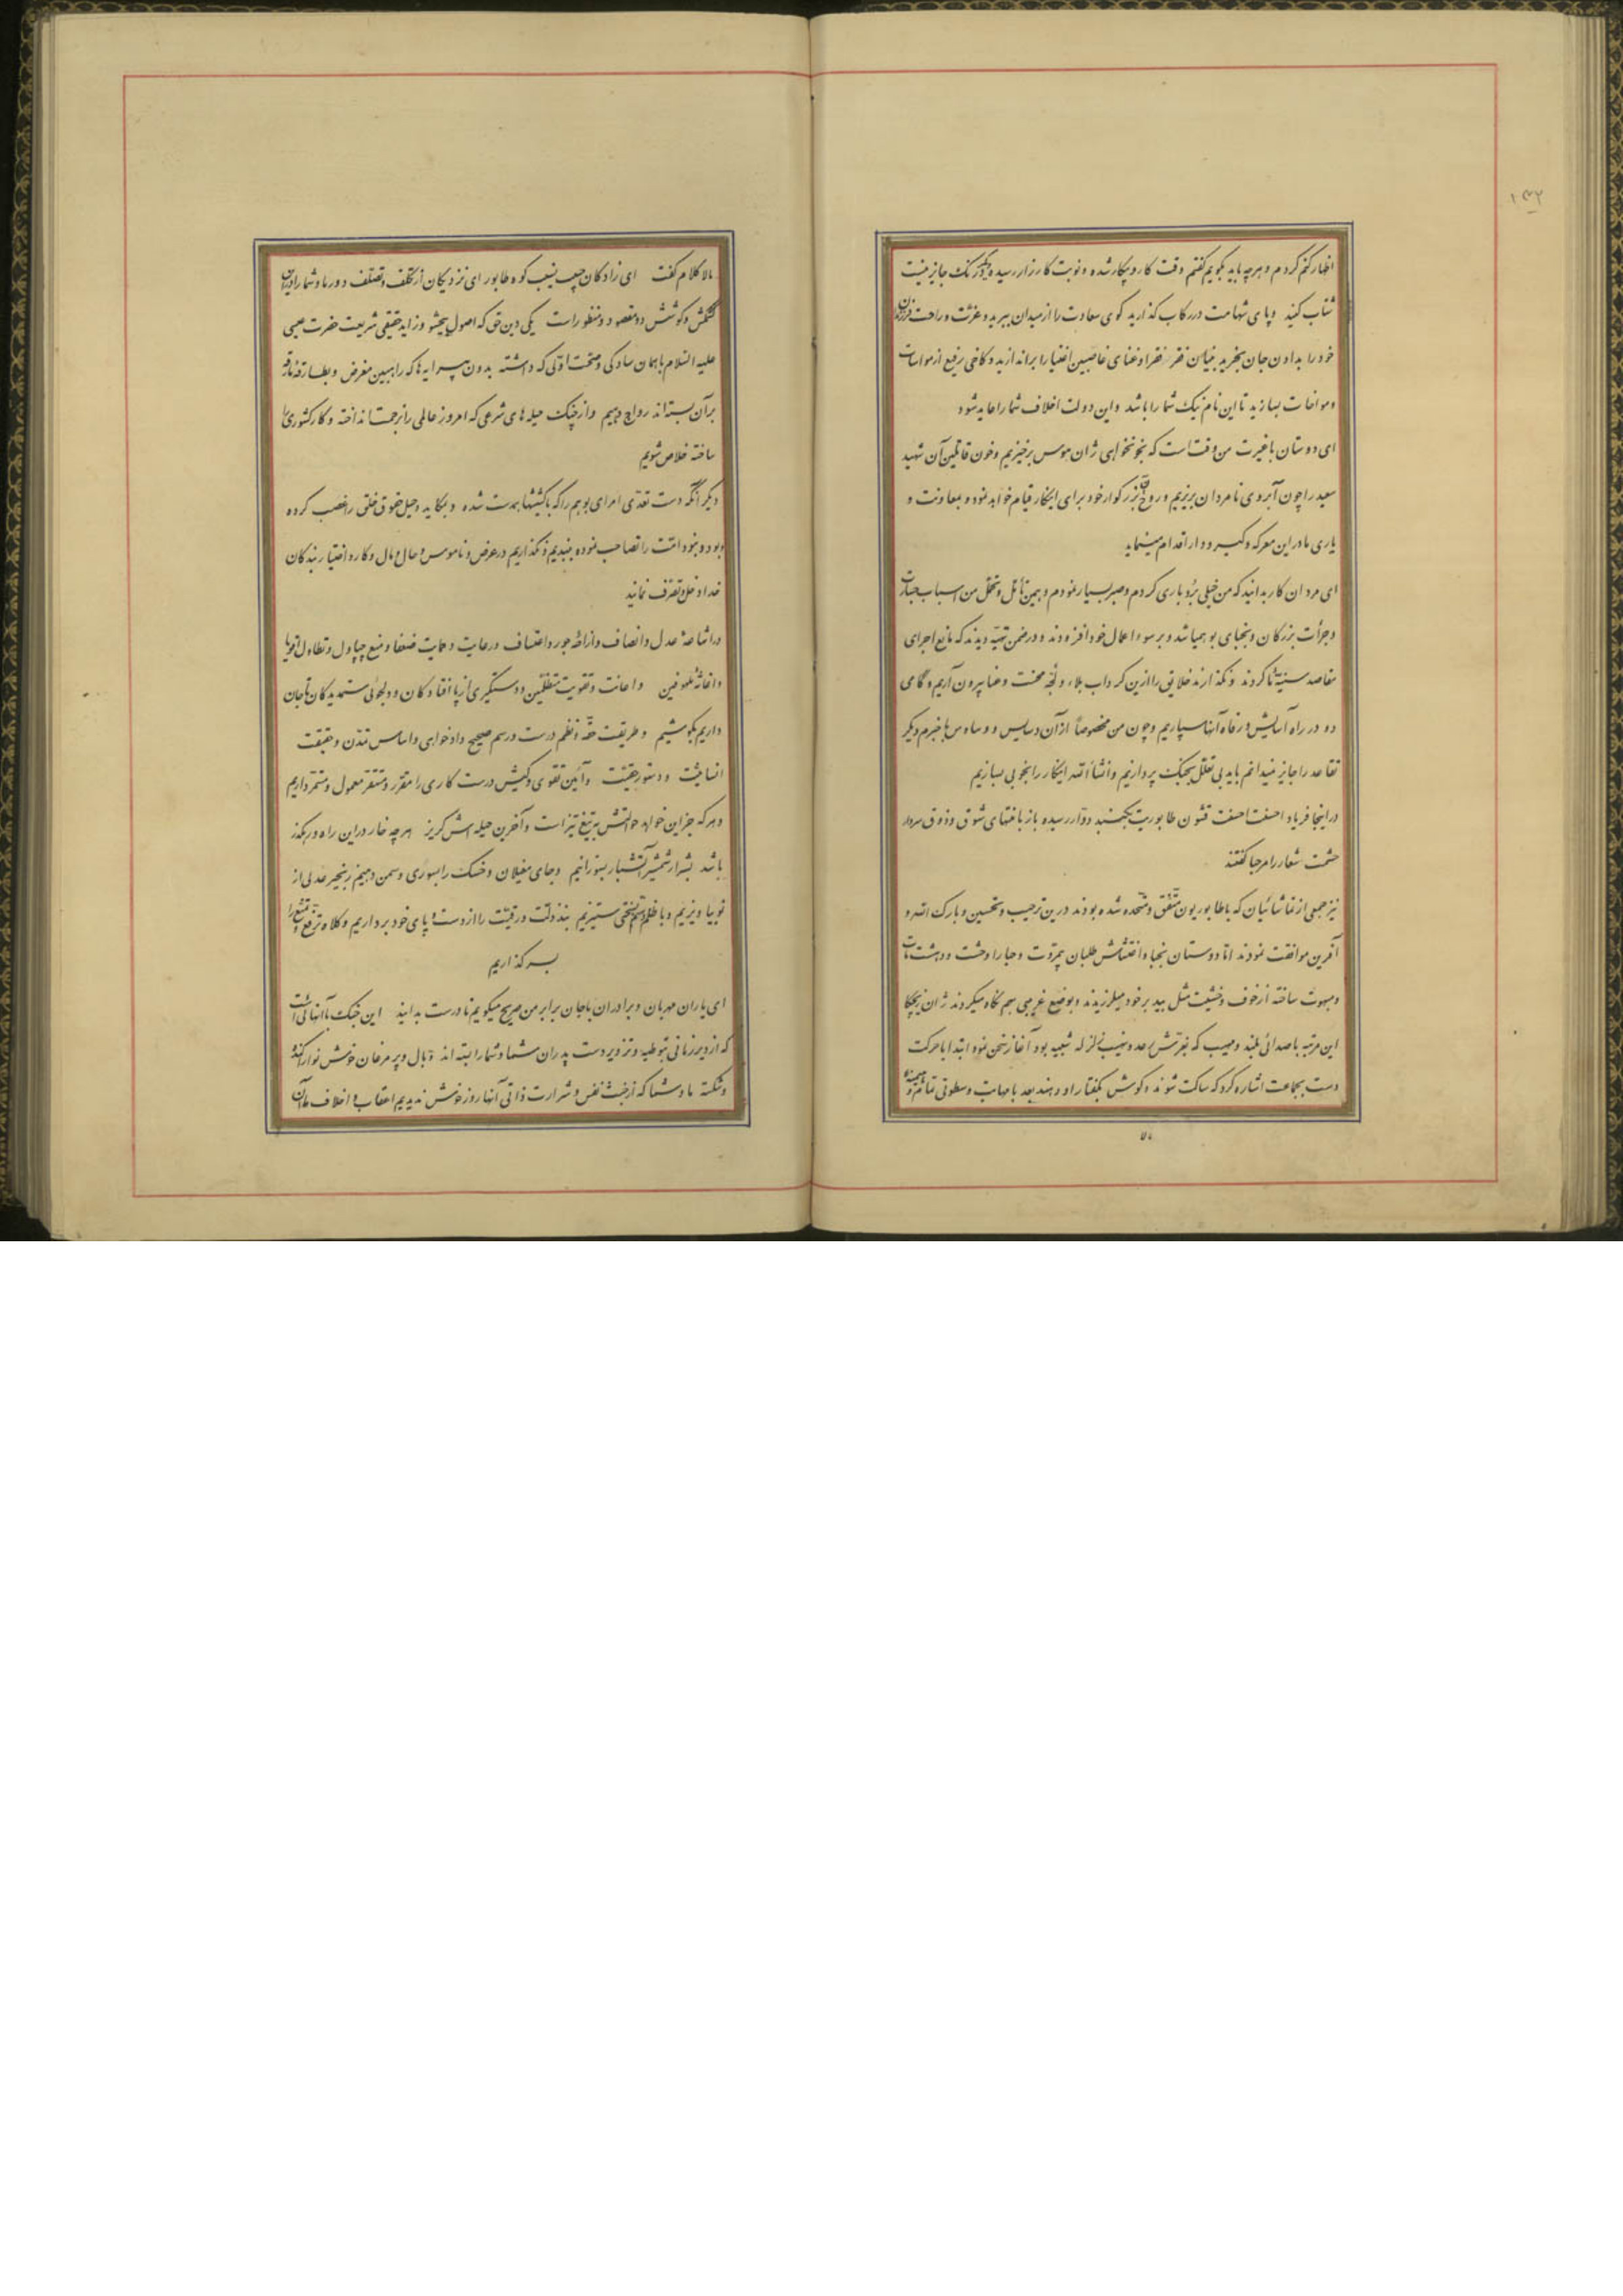 ۱۳۲
اظهار کنم کردم و هرچه باید بگویم گفتم وقت کار و پیکار شده و نوبت کارزار رسیده دیگر درنگ جایز نیست
شتاب کنید و پای شهامت در رکاب گذارید گوی سعادت را از میدان ببرید و عزت و راحت فرزندان
خود را بدادن جان بخرید بنیان فقر فقرا و غنای غاصبین اغنیا را براندازید و کاخی رفیع از مواسات
و مواخات بسازید تا این نام نیک شما را باشد و این دولت اخلاف شما را عاید شود
ای دوستان با غیرت من وقت است که بخونخواهی ژان موس برخیزیم و خون قاتلین آن شهید
سعید را چون آبروی نامردان بریزیم و روح بزرگوار خود برای اینکار قیام خواهد نمود و بمعاونت و
یاری ما در این معرکه و گیر و دار اقدام مینماید
ای مردان کار بدانید که من خیلی بردباری کردم و صبر بسیار نمودم و همین تأمل و تحمل من اسباب جسارت
و جرأت بزرگان و نجبای بوهمیا شد و بر سوء اعمال خود افزودند و در ضمن تهیه دیدند که مانع اجرای
مقاصد سنیه ما گردند و نگذارند خلایق را ازین گرداب بلا و لجه محنت و عنا بیرون آریم و گامی
دو در راه آسایش و رفاه آنها سپاریم و چون من مخصوصاً از آن دسایس و وساوس باخبرم دیگر
تقاعد را جایز نمیدانم باید بی تعلل بجنگ پردازیم و انشاء الله اینکار را بخوبی بسازیم
در اینجا فریاد احسنت احسنت قشون طابوریت بگنبد دوار رسیده باز با منتهای شوق و ذوق سردار
حشمت شعار را مرحبا گفتند
نیز جمعی از تماشائیان که با طابوریون متفق و متحد شده بودند درین ترحیب و تحسین و بارک الله و
آفرین موافقت نمودند اما دوستان نجبا و اغتشاش طلبان بیمروت و حیا را وحشت و دهشت مات
و مبهوت ساخته از خوف و خشیت مثل بید بر خود میلرزیدند و بوضع غریبی بهم نگاه میکردند ژان زیچکا
این مرتبه با صدائی بلند و مهیب که بغرش رعد و نهیب زلزله شبیه بود آغاز سخن نمود ابتدا با حرکت
دست بجماعت اشاره کرد که ساکت شوند و گوش بگفتار او دهند بعد با مهابت و سطوتی تمام
بالا کلام گفت ای زادگان حبیب نیب کوه طابور ای نزدیکان از تکلف و تصلف دور ما و شما را در این
کشمکش و کوشش دو مقصود و منظور است یکی دین حق که اصول و زاید حقیقی شریعت حضرت عیسی
علیه السلام با همان سادگی و صحت اولی که داشته بدون پیرایه ها که راهبین مغرض و بطارقه مارقه
بر آن بسته اند رواج دهیم و از چنگ حیله های شرعی که امروز عالمی را بزحمت انداخته و کار کشوری را
ساخته خلاص شویم
دیگر آنکه دست تعدی امرای بوهم را که با کشیشها همدست شده و بمکاید و حیل حقوق خلق را غصب کرده
و بود و نبود امت را تصاحب نموده ببندیم و نگذاریم در عرض و ناموس و حال و مال و کار و اختیار بندگان
خدا دخل و تصرف نمایند
در اشاعه عدل و انصاف و ازاله جور و اعتساف و رعایت و حمایت ضعفا و منع چپاول و تطاول اقویا
و اغاثه ملهوفین و اعانت و تقویت متظلمین و دستگیری از پا افتادگان و دلجوئی ستمدیدگان تا جان
داریم بکوشیم و طریقت حقه و نظم درست و رسم صحیح دادخواهی و اساس تمدن و حقیقت
انسانیت و دستور حقیت و آئین تقوی و کیش درست کاری را مقرر و مستقر معمول و مستمر داریم
و هر که جز این خواهد حوالتش به تیغ تیز است و آخرین حیله اش گریز هر چه خار در این راه و رهگذر
باشد بشرار شمشیر آتشبار بسوزانیم و بجای مغیلان و خسک را سوری و سمن دهیم زنجیر عدلی از
نو بیاویزیم و با ظلم و ستم بسختی ستیزیم بند ذلت و رقیت را از دست و پای خود برداریم و کلاه ترفع و تمنع را
بسر گذاریم
ای یاران مهربان و برادران با جان برابر من صریح میگویم تا درست بدانید این جنگ با آنهائی است
که از دیر زمانی بتوطیه و تزویر دست پدران شما و شما را بسته اند و بال و پر مرغان خوش نوا را کنده
و شکسته ما و شما که از خبث نفس و شرارت ذاتی آنها روز خوش ندیدیم اعقاب و اخلاف ما از آن